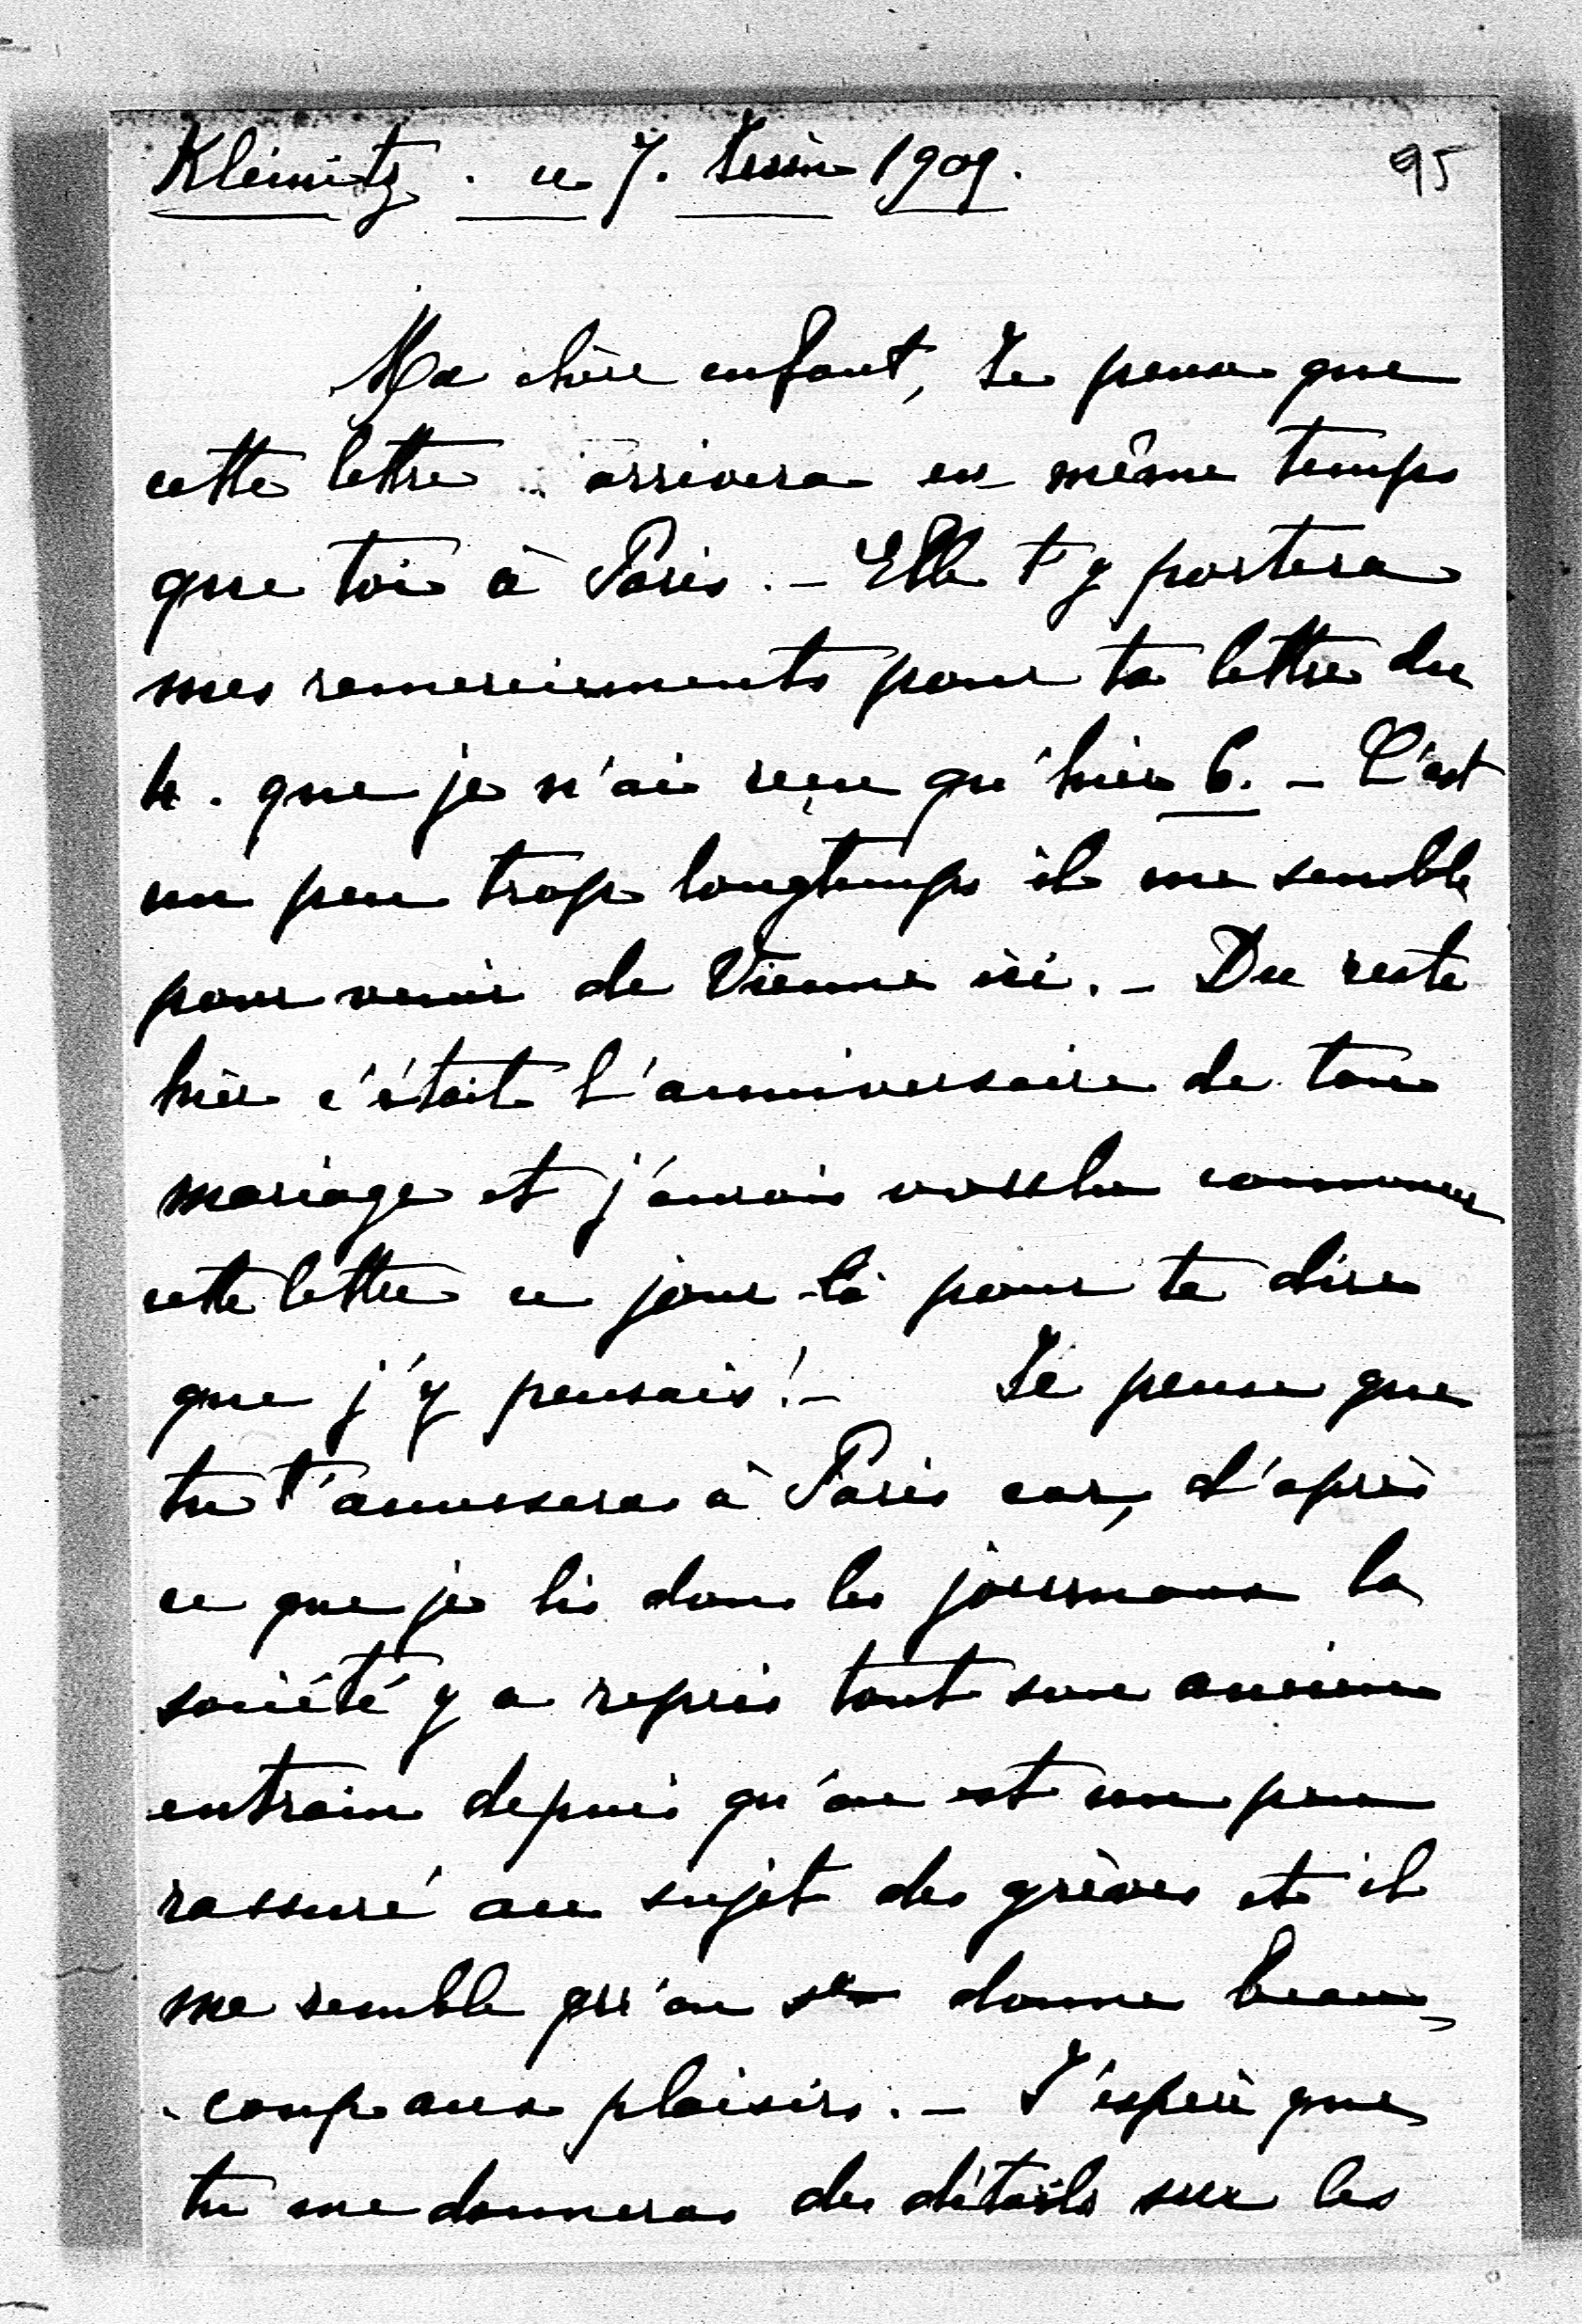 Kleinitz. ce 7. Juin 1909.
95
Ma chère enfant, Je pense que
cette lettre arrivera en même temps
que toi à Paris. - Elle t'y portera
mes remerciements pour ta lettre du
4. que je n'ai reçu qu'hier 6. - C'est
un peu trop longtemps il me semble
pour venir de Vienne ici. - Du reste
hier c'était l'anniversaire de ton
mariage et j'aurais voulu commencer
cette lettre ce jour-là pour te dire
que j'y pensais! - Je pense que
tu t'amuseras à Paris car, d'après
ce que je lis dans les journaux la
société y a repris tout son ancien
entrain depuis qu'on est un peu
rassuré au sujet des grèves et il
me semble qu'on donne beau-
-coup aux plaisirs. - J'espère que
tu me donneras des détails sur les